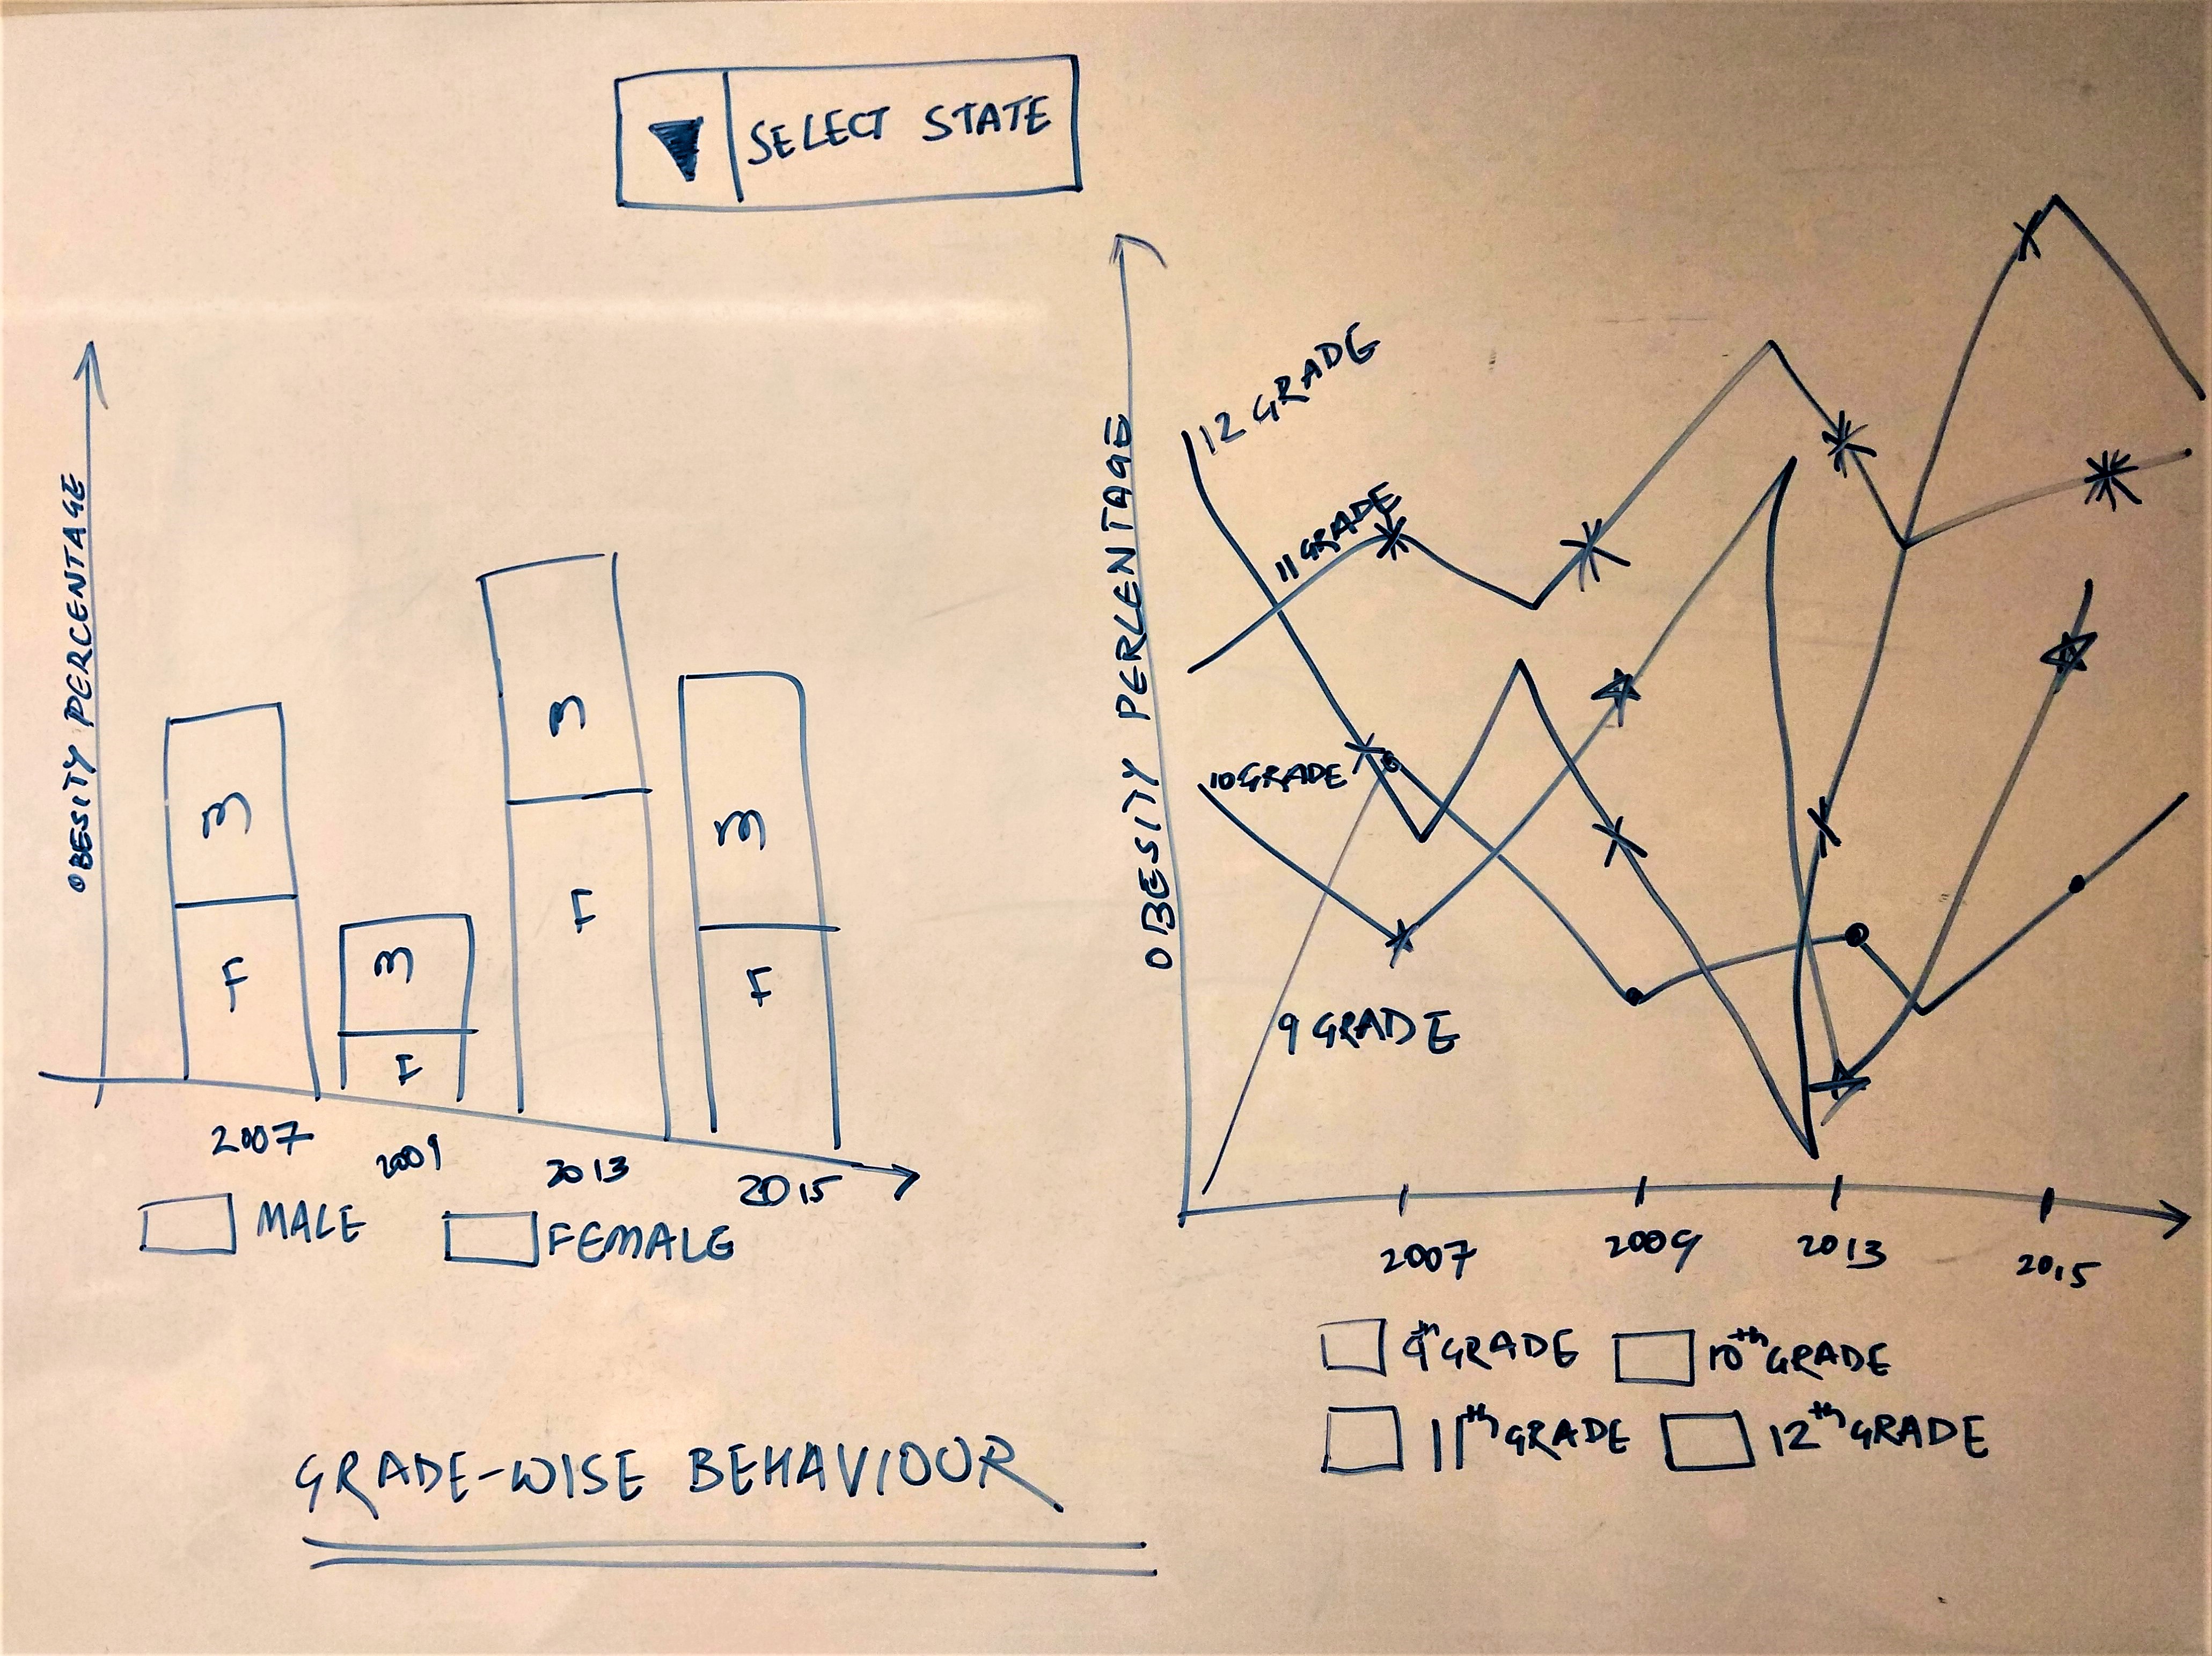 SELECT STATE
OBESITY PERCENTAGE
M
F
M
F
M
F
M
F
2007
2009
2013
2015
MALE
FEMALE
OBESITY PERCENTAGE
12 GRADE
11 GRADE
10 GRADE
9 GRADE
2007
2009
2013
2015
9th GRADE
10th GRADE
11th GRADE
12th GRADE
GRADE-WISE BEHAVIOUR